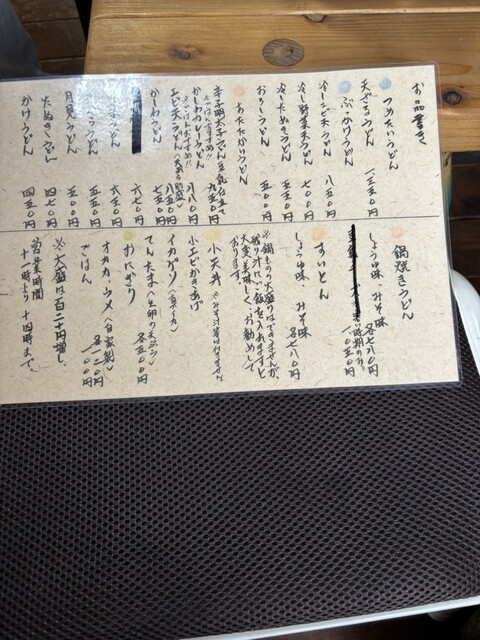 お品書き
つめたいうどん
天ざるうどん 一二五〇円
ぶっかけうどん
冷しエビ天うどん 八五〇円
冷し野菜天うどん 七〇〇円
冷したぬきうどん 五五〇円
おろしうどん 五五〇円
あたたかいうどん
辛子明太子うどん豆乳仕立て 九五〇円
※ごはんおすすめ!!
かしわカレーうどん 八八〇円
※ごはんおすすめ!!
エビ天うどん 八五〇円
かしわうどん 七五〇円
六七〇円
うどん 六五〇円
うどん 五五〇円
月見うどん 五〇〇円
たぬきうどん 四七〇円
かけうどん 四五〇円
鍋焼きうどん
しょうゆ味、みそ味 各七八〇円
一〇五〇円
すいとん
しょうゆ味 みそ味 各七八〇円
※鍋ものの大盛りはできませんが、
残り汁にご飯を入れますと
大変美味しく、お勧めして
おります。
小天丼 ※みそ汁等は付きません
小エビかきあげ
イカゲソ(真イカ)
てんたま(生卵の天ぷら) 各五〇〇円
おにぎり
オカカ、ウメ(自家製) 各一二〇円
ごはん 一〇〇円
※大盛は百二十円増し、
営業時間
十一時より十四時まで、